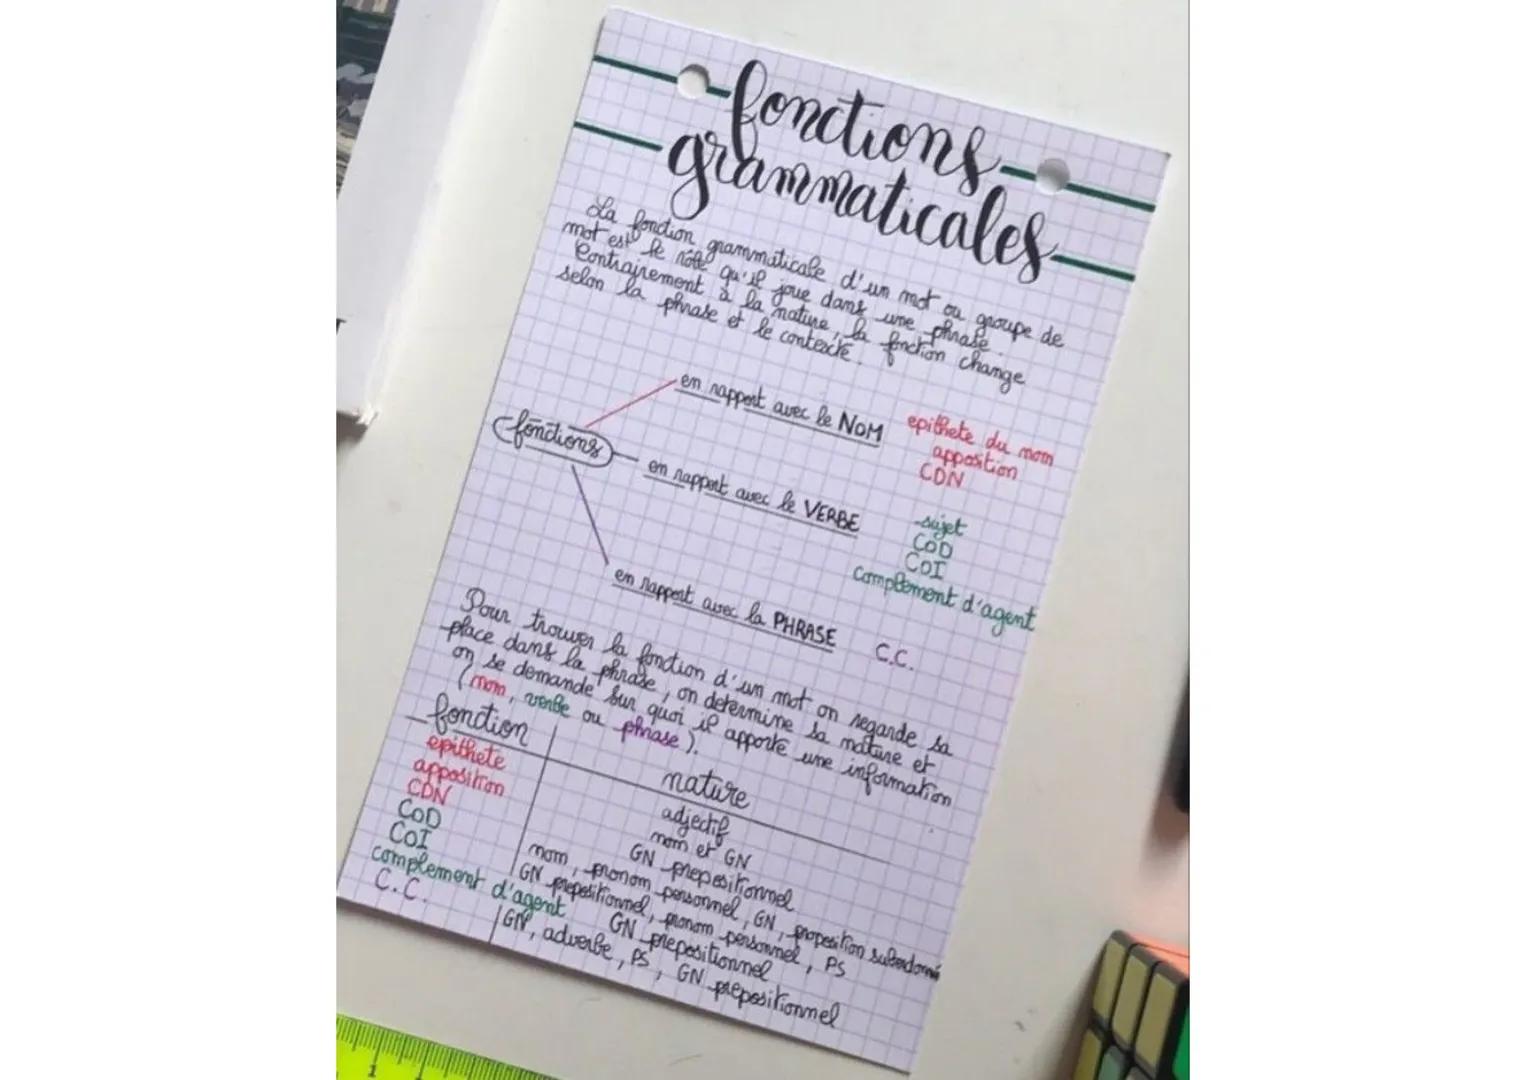 fonctions
grammaticales
La fonction grammaticale d'un mot ou groupe de
mot est le rôle qu'il joue dans une phrase.
Contrairement à la nature, la fonction change
selon la phrase et le contexte.
en rapport avec le NOM
epithete du nom
apposition
CDN
fonctions
en rapport avec le VERBE
sujet
COD
COI
complement d'agent
en rapport avec la PHRASE
C.C.
Pour trouver la fonction d'un mot on regarde sa
place dans la phrase, on determine sa nature et
on se demande sur quoi il apporte une information
(nom, verbe ou phrase).
fonction nature
epithete adjectif
apposition nom et GN
CDN GN prepositionnel
COD nom, pronom personnel, GN, proposition subordonné
COI GN prepositionnel, pronom personnel, PS
complement d'agent GN prepositionnel
C.C. GN, adverbe, PS, GN prepositionnel
1